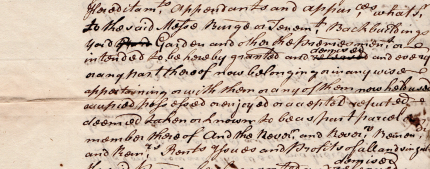 Hereditamts. Appendants and appurces. whats.
to the said Messe Burge or Tenemt. Backbuildings
Yard Garden and other the premes menconed or
intended to be hereby granted and demised and every
or any part thereof now belonging or in any wise
appertaining or with them or any of them now held used
occupied possessed or enjoyed or accepted reputed
deemed taken or known to be as part parcel or
member thereof And the Revon. and Revons. Remaindr.
and Remrs. Rents Issues and Profits of all and singular
demised